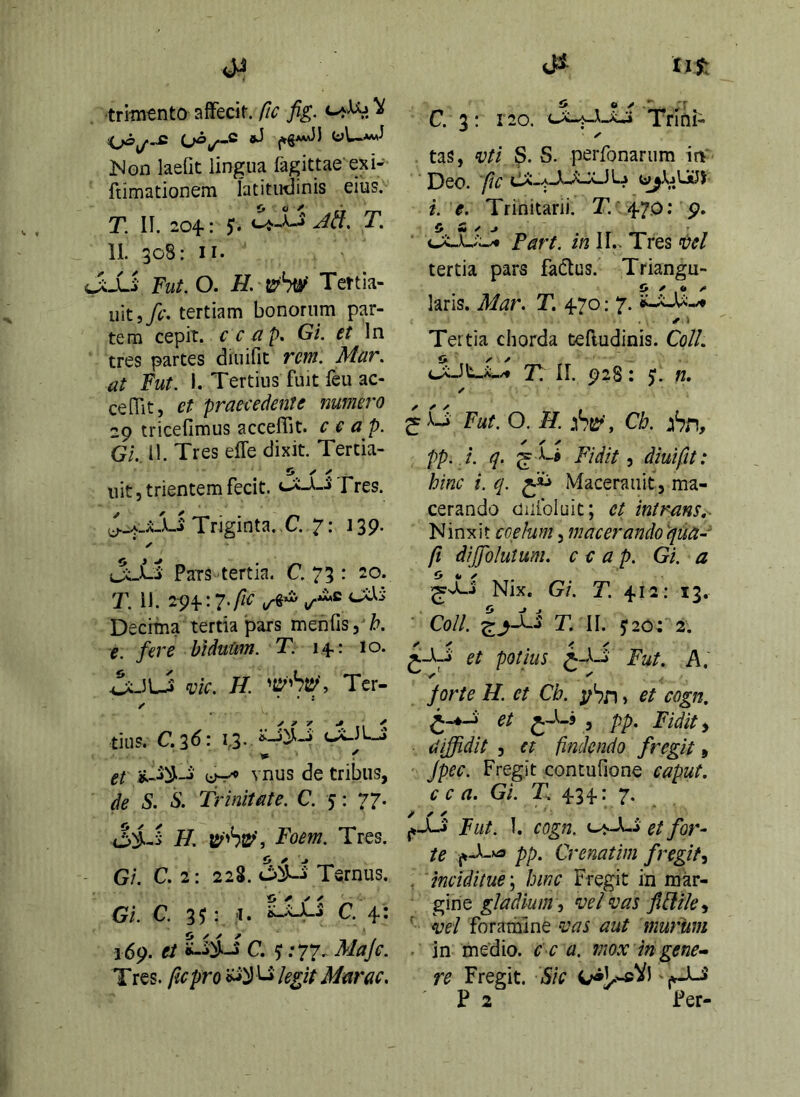 ثل
trimento affecit. sic fig. لا يثلب
لسان السهم له عرض عريض
Non laesit lingua sagittae exi-
stimationem latitudinis eius.
T. II. 204: 5. ثَلْبٌ Act. T.
II. 308: 11.
ثَلَثَ Fut. O. H. שלש Tertia-
uit, sc. tertiam bonorum par-
tem cepit. c c a p. Gi. et In
tres partes diuisit rem. Mar.
at Fut. I. Tertius fuit seu ac-
cessit, et praecedente numero
29 tricesimus accessit. c c a p.
Gi. II. Tres esse dixit. Tertia-
uit, trientem fecit. ثَلَثٌ Tres.
ثَلَثِينَ Triginta. C. 7: 139.
ثُلُثٌ Pars tertia. C. 73: 20.
T. II. 294: 7. sic ثلث عشر شهر
Decima tertia pars mensis, h.
e. fere biduum. T. 14: 10.
ثَالِثٌ vic. H. שלישי, Ter-
tius. C. 36: 13. ثَالِثُ ثَلَاثَةٍ
et من ثلاثة vnus de tribus,
de S. S. Trinitate. C. 5: 77.
ثَلَاثٌ H. שליש, Foem. Tres.
Gi. C. 2: 228. ثُلَاثٌ Ternus.
Gi. C. 35: 1. ثَلَثَةٌ C. 4:
169. et ثَلَاثَةٌ C. 5: 77. Masc.
Tres. sic pro ثالاثة legit Marac.
ثل 115
C. 3: 120. تَثْلِيثٌ Trini-
tas, vti S. S. personarum in
Deo. sic القائلون بالتثليث
i. e. Trinitarii. T. 470: 9.
مُثَلَّثٌ Part. in II. Tres vel
tertia pars factus. Triangu-
laris. Mar. T. 470: 7. مَثْلَثَةٌ
Tertia chorda testudinis. Coll.
مَثَالِثُ T. II. 928: 5. n.
ثَلَجَ Fut. O. H. שלג, Ch. תלג,
pp. i. q. فلج Fidit, diuisit:
hinc i. q. نقع Macerauit, ma-
cerando dissoluit; et intrans.
Ninxit coelum, macerando qua-
si dissolutum. c c a p. Gi. a
ثَلْجٌ Nix. Gi. T. 412: 13.
Coll. ثُلُوجٌ T. II. 520: 2.
ثلع et potius ثلغ Fut. A.
forte H. et Ch. תלע, et cogn.
et فلع, pp. Fidit,
diffidit, et findendo fregit,
spec. Fregit contusione caput.
c c a. Gi. T. 434: 7.
ثَلَمَ Fut. I. cogn. ثلب et for-
te صلم pp. Crenatim fregit,
inciditue; hinc Fregit in mar-
gine gladium, vel vas fictile,
vel foramine vas aut murum
in medio. c c a. mox in gene-
re Fregit. Sic ثلم الاعراض
P 2 Per-